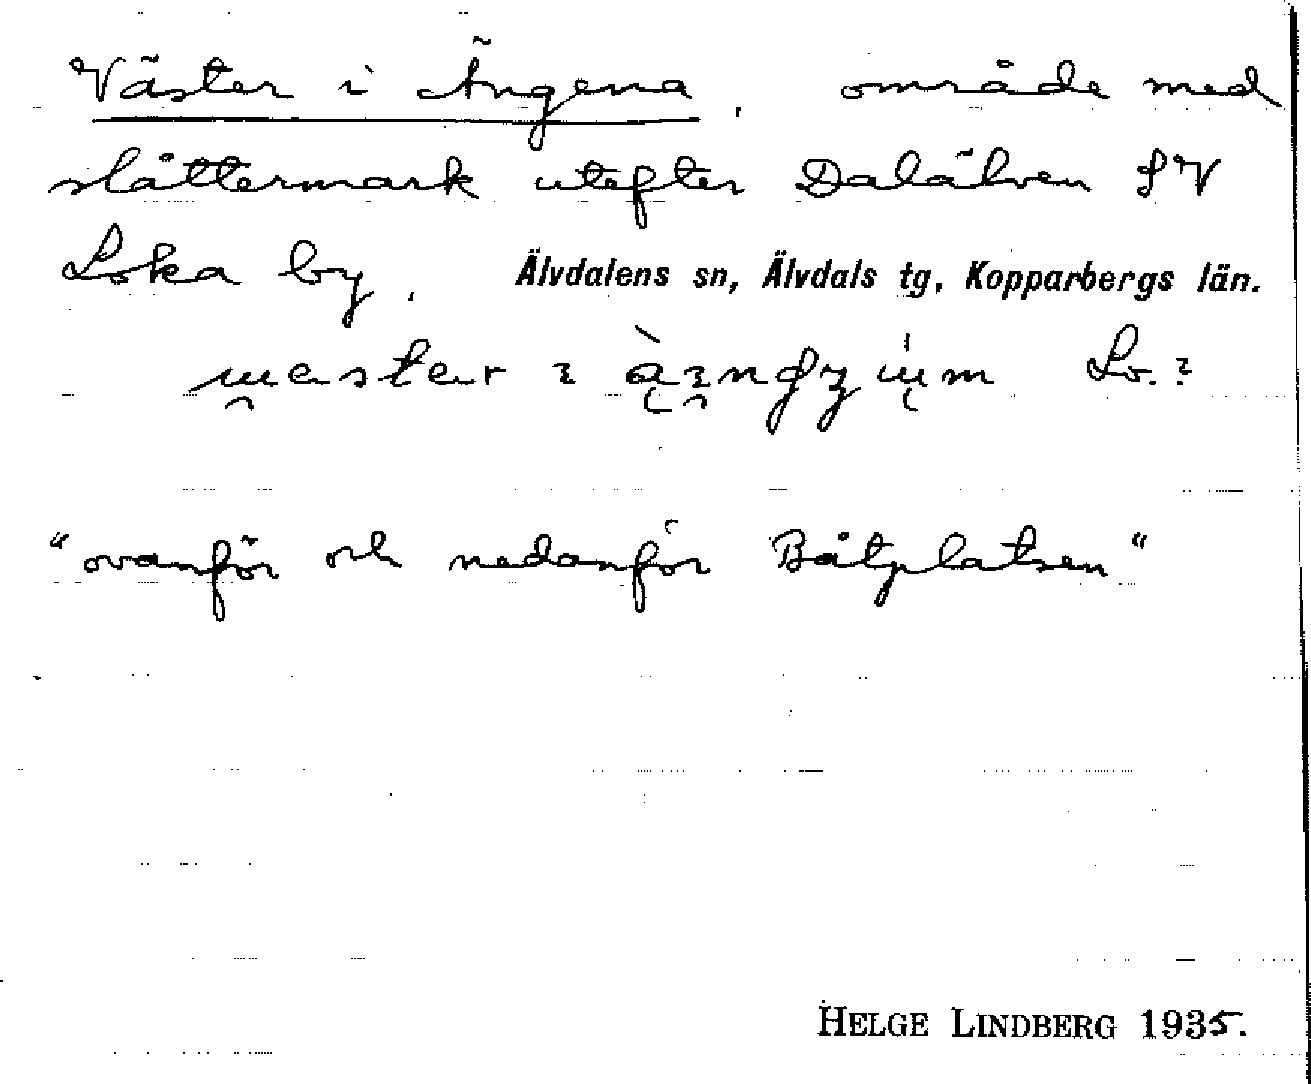 Väster i Ängena, område med
slåttermark utefter Dalälven SV
Loka by. Älvdalens sn, Älvdals tg, Kopparbergs län.
Lo.?
"ovanför och nedanför Båtplatsen"
HELGE LINDBERG 1935.